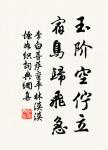 玉阶空伫立
宿鸟归飞急
李白菩萨蛮平林漠漠
烟如织词典偶集